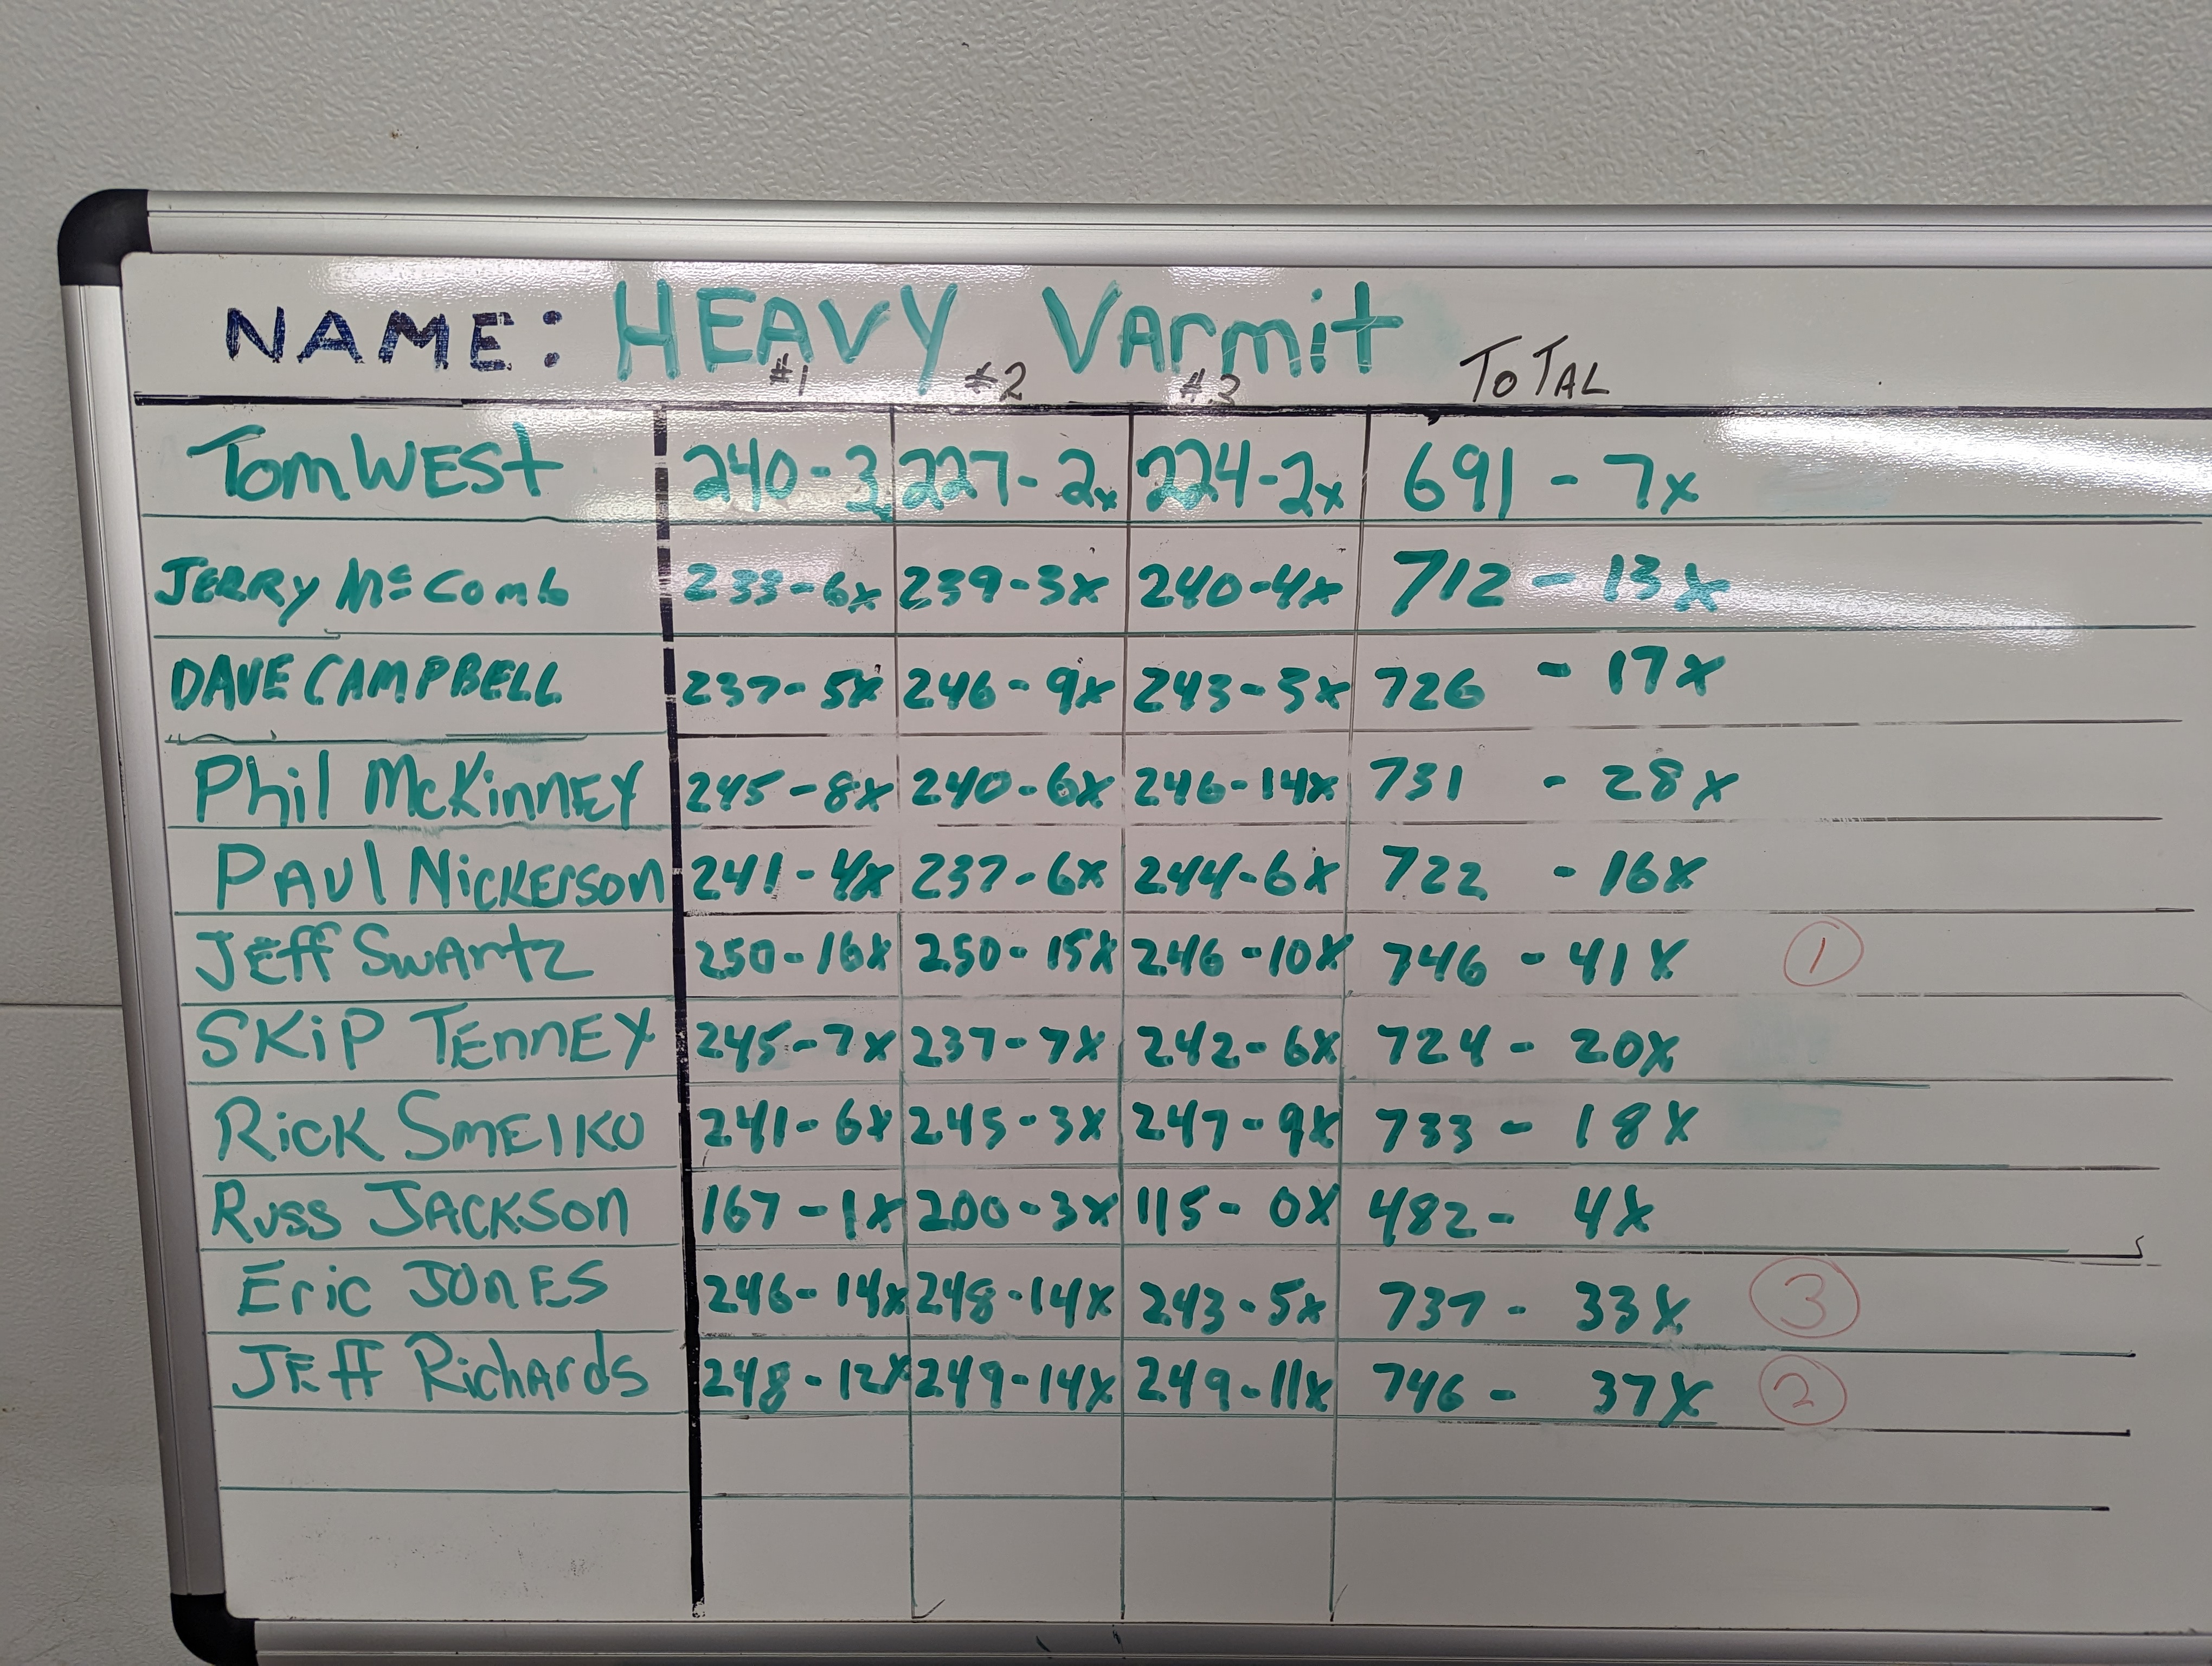 NAME: HEAVY Varmit
#1 #2 #3 TOTAL
Tom WEST 240-3x 227-2x 224-2x 691-7x
JERRY McComb 233-6x 239-3x 240-4x 712-13x
DAVE CAMPBELL 237-5x 246-9x 243-3x 726-17x
Phil McKinney 245-8x 240-6x 246-14x 731-28x
PAUL Nickerson 241-4x 237-6x 244-6x 722-16x
Jeff Swartz 250-16x 250-15x 246-10x 746-41x 1
SKiP TENNEY 245-7x 237-7x 242-6x 724-20x
Rick SMEIKO 241-6x 245-3x 247-9x 733-18x
Russ JACKSON 167-1x 200-3x 115-0x 482-4x
Eric JONES 246-14x 248-14x 243-5x 737-33x 3
Jeff Richards 248-12x 249-14x 249-11x 746-37x 2